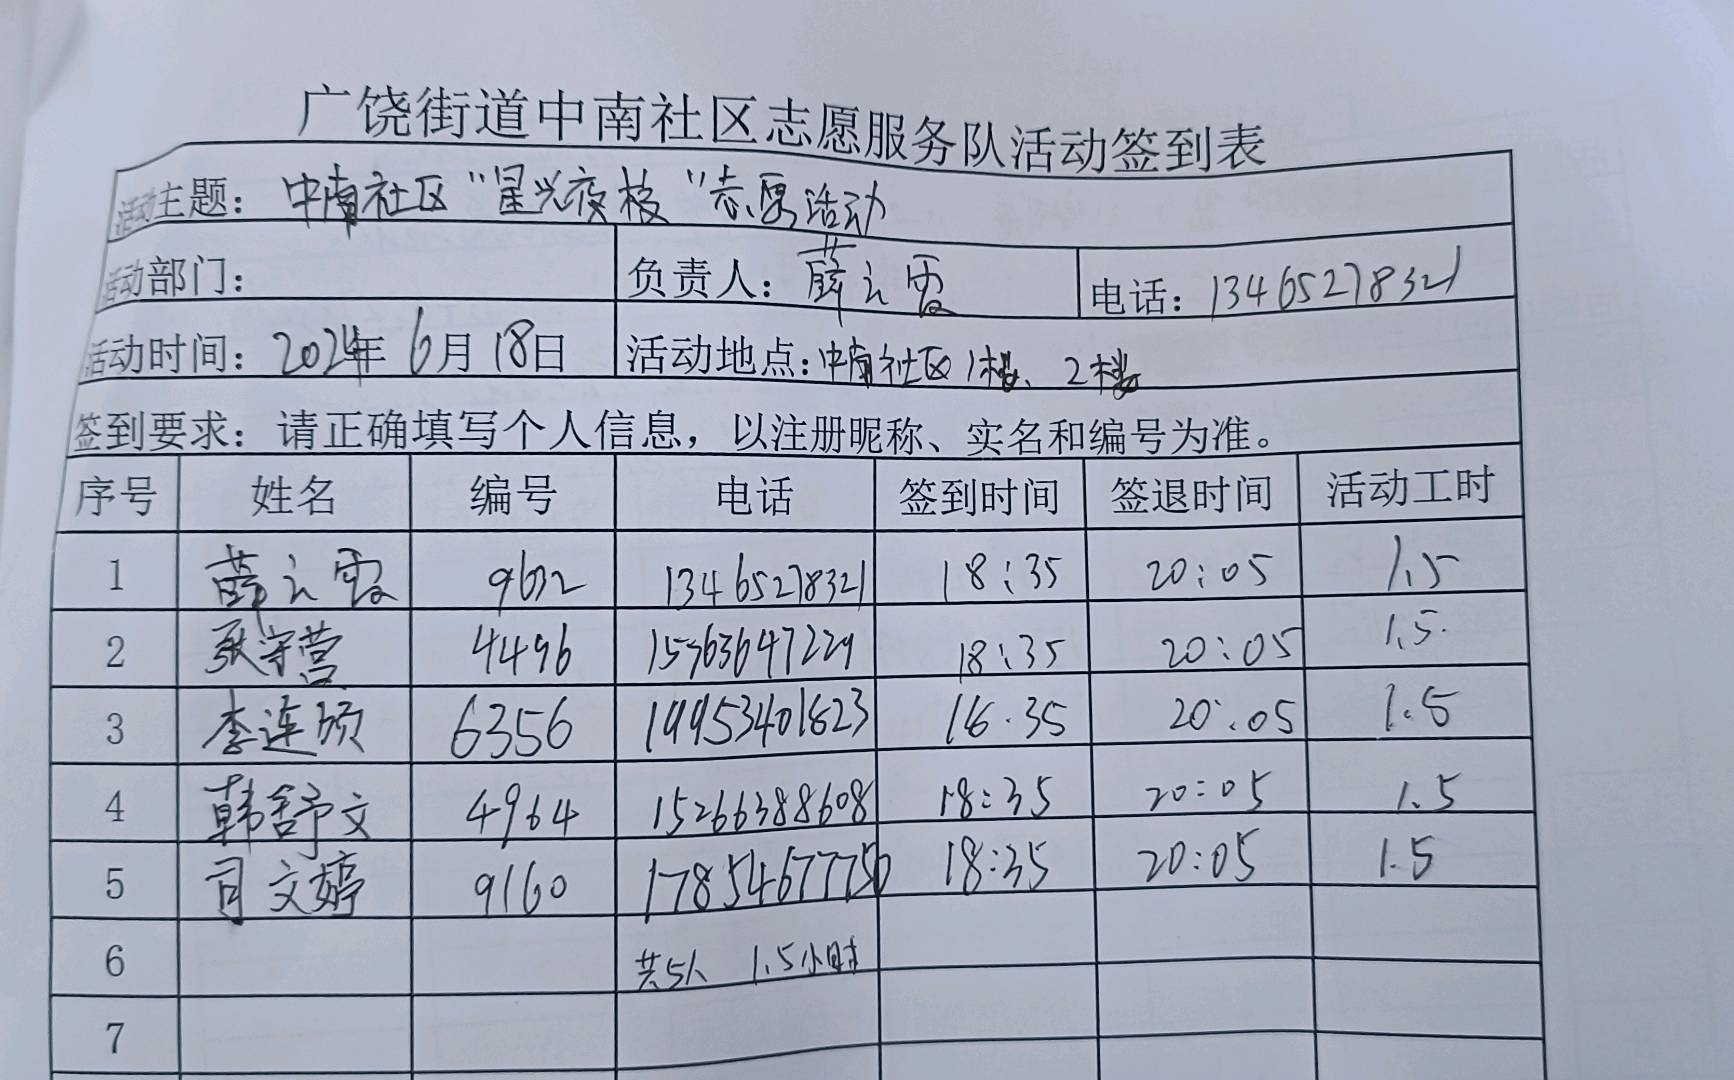 广饶街道中南社区志愿服务队活动签到表
活动主题：中南社区“星兴夜校”志愿活动
活动部门： 负责人：薛云霞 电话：13465278321
活动时间：2024年6月18日 活动地点：中南社区1楼、2楼
签到要求：请正确填写个人信息，以注册昵称、实名和编号为准。
序号 姓名 编号 电话 签到时间 签退时间 活动工时
1 薛云霞 9632 13465278321 18:35 20:05 1.5
2 守营 4496 18:35 20:05 1.5
3 李连颀 6356 19953401823 18:35 20:05 1.5
4 韩舒文 4964 15266388608 18:35 20:05 1.5
5 司文婷 9160 17854677750 18:35 20:05 1.5
6 共5人 1.5小时
7